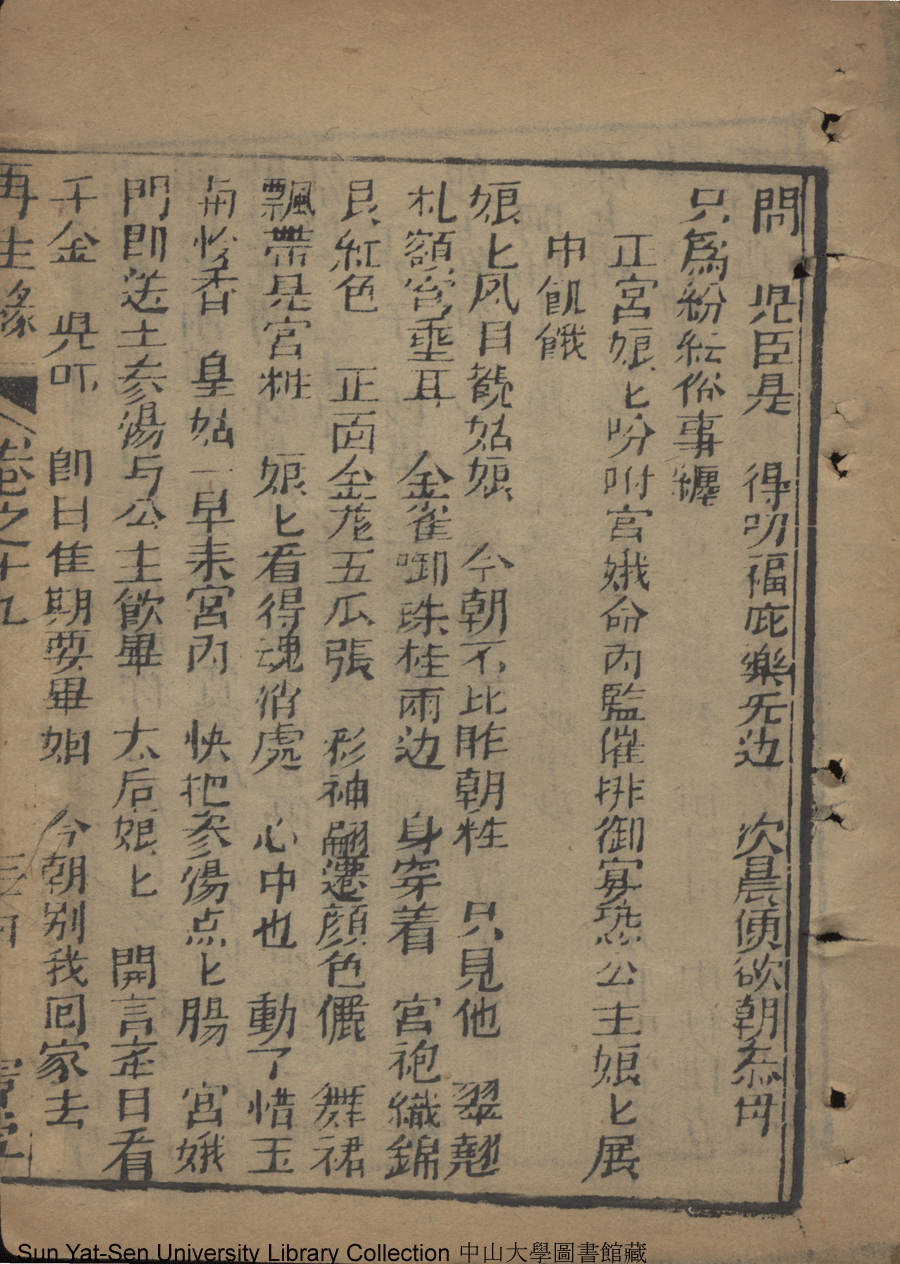 問　児臣是　得叨福庇樂无边　次晨便欲朝叅母
只為紛紜俗事纒
正宮娘匕吩咐宮娥命內監催排御宴恐公主娘匕展
中飢餓
娘匕凤目覩姑娘　今朝不比昨朝粧　只見他　翠翹
札額寳垂耳　金雀啣珠桂兩边　身穿着　宮袍織錦
艮紅色　正面金龙五瓜張　形神翩遷顔色儷　舞裙
飄帶是宮粧　娘匕看得魂消處　心中也　動了惜玉
与怜香　皇姑一早来宮內　快把参湯点匕腸　宮娥
門即送上参湯与公主飲畢　太后娘匕　開言定日看
千金　児吖　即日隹期要畢姻　今朝别我囘家去
再生緣　卷之十九　三四　堂
Sun Yat-Sen University Library Collection 中山大學圖書館藏